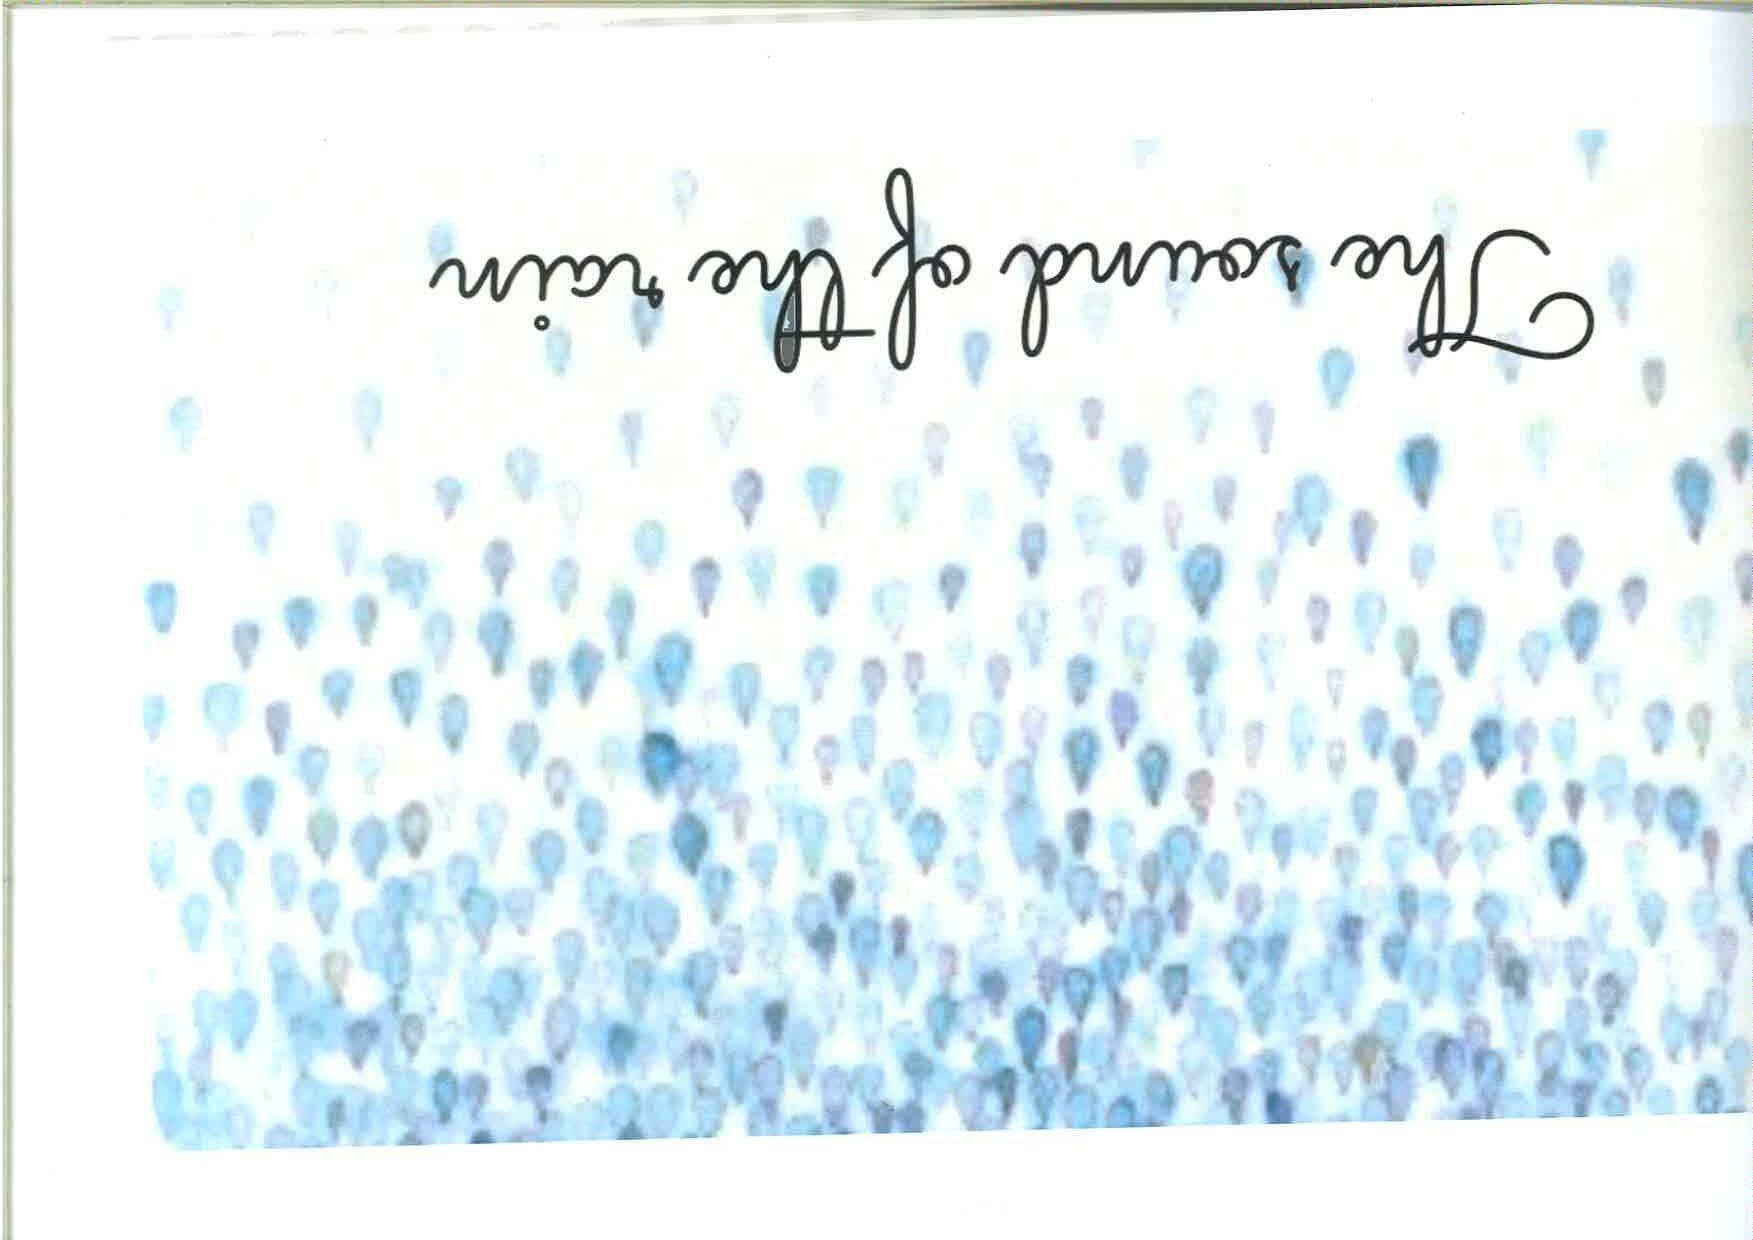 The sound of the rain